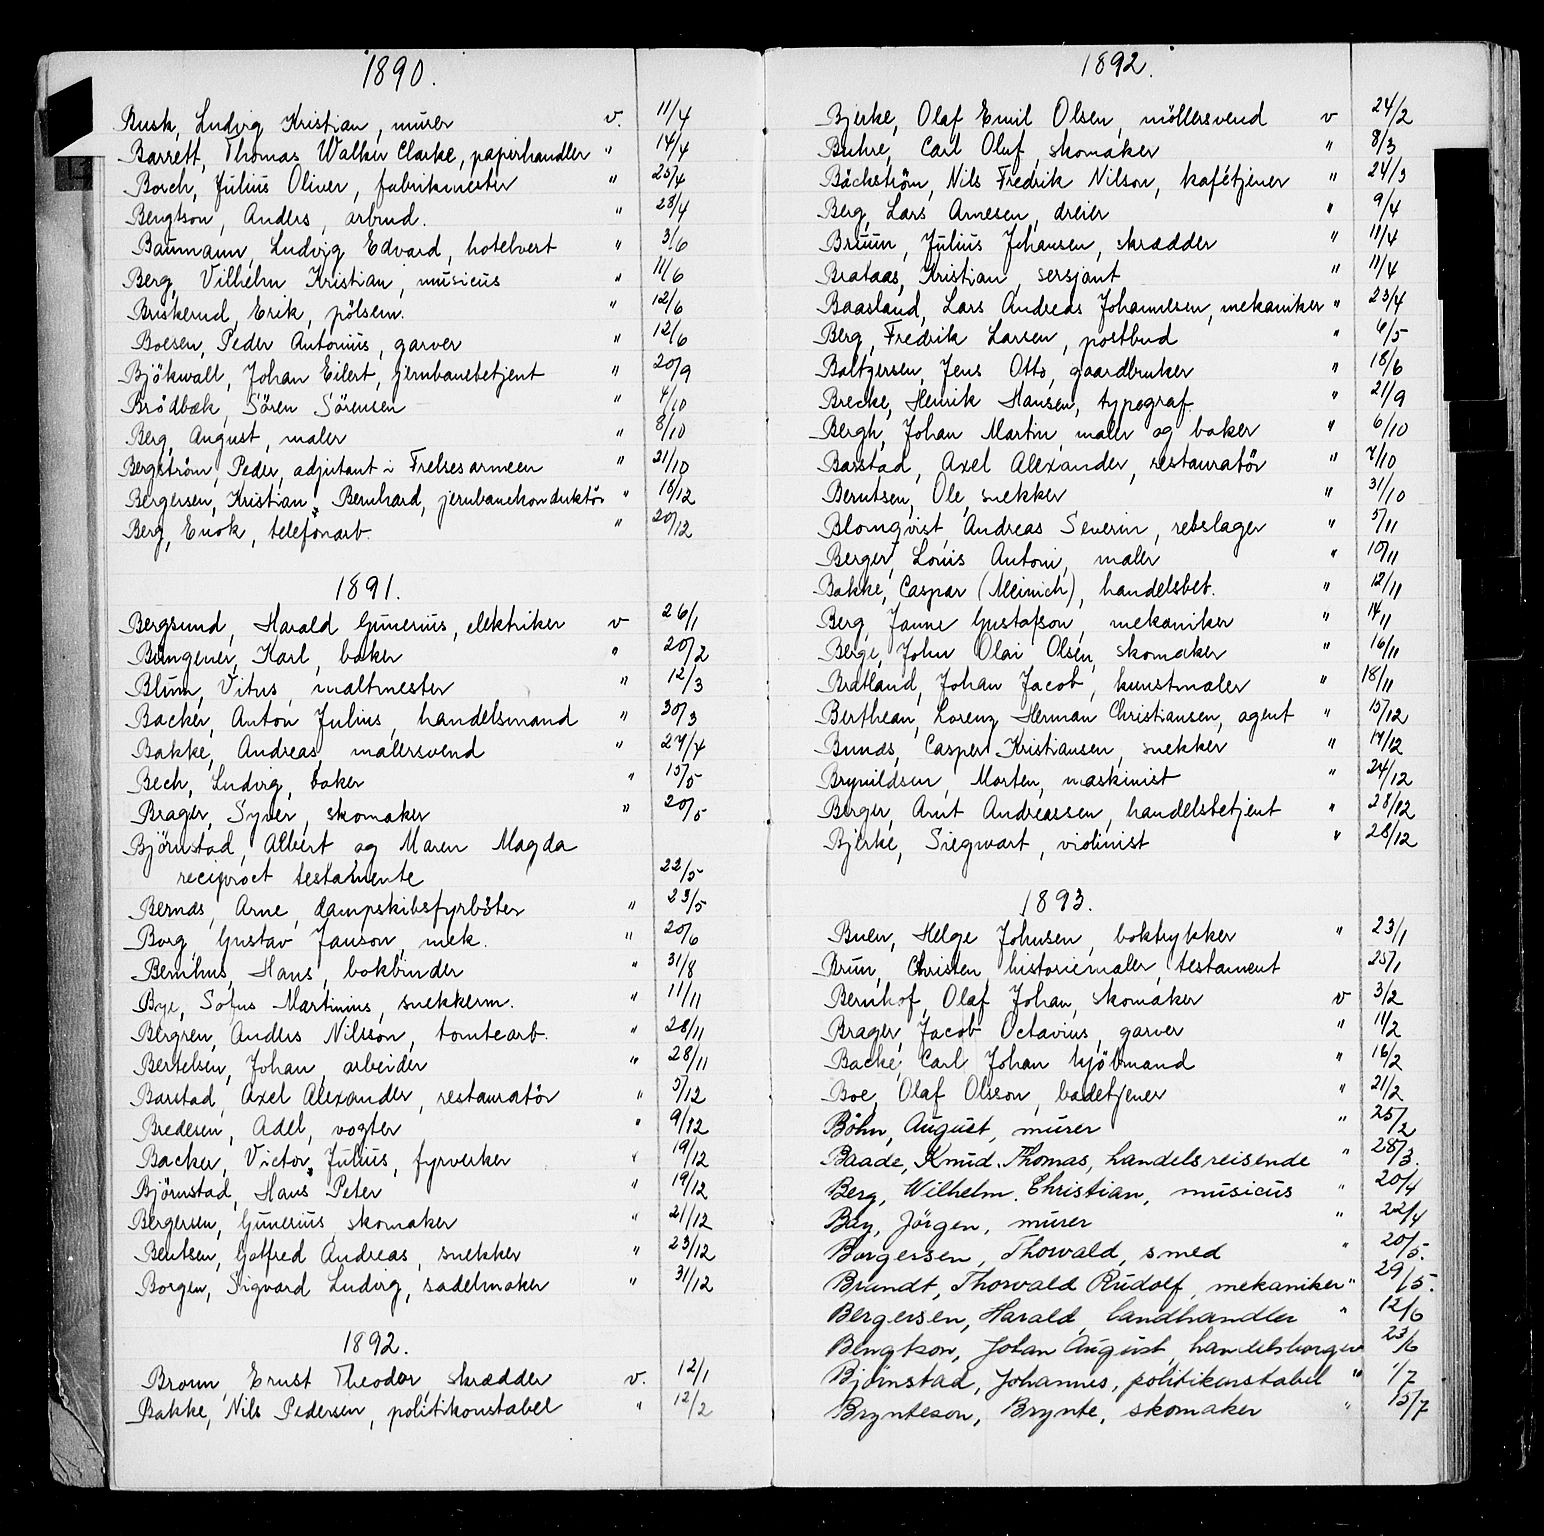 1890.
Busk, Ludvig Kristian, murer v. 11/4
Barrett, Thomas Walker Clarke, papirhandler " 14/4
Borch, Julius Oliver, fabrikmester " 25/4
Bengtson, Anders, arbmd. " 28/4
Baumann, Ludvig Edvard, hotelvert " 3/6
Berg, Vilhelm Kristian, musicus " 11/6
Briskerud, Erik, pölsem. " 12/6
Boesen, Peder Antonius, garver " 12/6
Björkwall, Johan Eilert, jernbanebetjent " 20/9
Brödbæk, Sören Sörensen " 4/10
Berg, August, maler " 8/10
Bergström, Peder, adjutant i Frelsesarmeen " 21/10
Bergersen, Kristian Bernhard, jernbanekonduktör " 18/12
Berg, Enok, telefonarb. " 20/12
1891.
Bergsund, Harald Gunerius, elektriker v 26/1
Bungener, Karl, baker " 20/2
Blum, Vitus, maltmester " 12/3
Backer, Anton Julius, handelsmand " 30/3
Bakke, Andreas, malersvend " 27/4
Bech, Ludvig, baker " 15/5
Brager, Syver, skomaker " 20/5
Björnstad, Albert og Maren Magda
reciproct testamente 22/5
Bernås, Arne, dampskibsfyrböter " 23/5
Borg, Gustav Janson, mek. " 20/6
Bernhus, Hans, bokbinder " 31/8
Bye, Sofus Martinius, snekkerm. " 11/11
Bergren, Anders Nilsson, tomtearb. " 28/11
Bertelsen, Johan, arbeider " 28/11
Barstad, Axel Alexander, restauratör " 5/12
Bredesen, Adel, vogter " 9/12
Backer, Victor Julius, fyrverker " 19/12
Björnstad, Hans Peter " 19/12
Bergersen, Gunerius skomaker " 21/12
Bentsen, Gotfred Andreas, snekker " 23/12
Borgen, Sigvard Ludvig, sadelmaker " 31/12
1892.
Broun, Ernst Theodor, skrædder v. 12/1
Bakke, Nils Pedersen, politikonstabel " 12/2
1892.
Bjerke, Olaf Emil Olsen, möllersvend v 24/2
Buhre, Carl Oluf, skomaker " 8/3
Bäckström, Nils Fredrik Nilson, kafétjener " 24/3
Berg, Lars Arnesen, dreier " 9/4
Bruun, Julius Johansen, skrædder " 11/4
Brataas, Kristian, sersjant " 11/4
Baasland, Lars Andreas Johannesen, mekaniker " 23/4
Berg, Fredrik Larsen, postbud " 6/5
Baltzersen, Jens Otto, gaardbruker " 18/6
Brecke, Henrik Hansen, typograf " 21/9
Bergh, Johan Martin, maler og baker " 6/10
Barstad, Axel Alexander, restauratör " 7/10
Berntsen, Ole, snekker " 31/10
Blomqvist, Andreas Severin, rebslager " 5/11
Berger, Louis Antoni, maler " 10/11
Bakke, Caspar (Meinich), handelsbet. " 12/11
Berg, Janne Gustafson, mekaniker " 14/11
Berge, John Olai Olsen, skomaker " 16/11
Bratland, Johan Jacob, kunstmaler " 18/11
Berthean, Lorenz Herman Christiansen, agent " 15/12
Bunæs, Casper Kristiansen, snekker " 17/12
Brynildsen, Morten, maskinist " 24/12
Berger, Arnt Andreassen, handelsbetjent " 28/12
Bjerke, Siegwart, violinist " 28/12
1893.
Buen, Helge Johnsen, boktrykker " 23/1
Brun, Christen, historiemaler, testament 25/1
Bernhof, Olaf Johan, skomaker v 3/2
Brager, Jacob Octavius, garver " 11/2
Backe, Carl Johan kjöbmand " 16/2
Boe, Olaf Olsson, badetjener " 21/2
Böhn, August, murer " 25/2
Baade, Knud Thomas, handelsreisende " 28/3.
Berg, Wilhelm Christian, musicus " 20/4
Bay, Jörgen, murer " 22/4
Borgersen, Thorvald, smed " 20/5.
Brandt, Thorvald Rudolf, mekaniker " 29/5.
Bergersen, Harald, landhandler " 12/6
Bengtson, Johan August, handelsborger 23/6
Björnstad, Johannes, politikonstabel " 1/7
Brynteson, Brynte, skomaker " 15/7